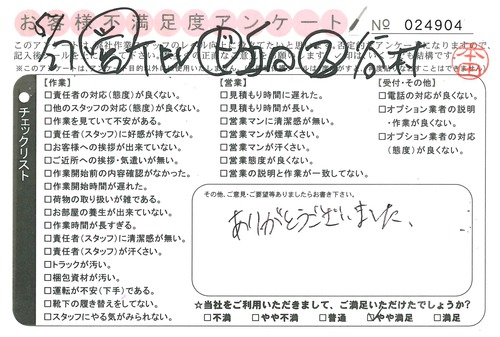 お客様不満足度アンケート No 024904
チェックリスト
【作業】
□責任者の対応(態度)が良くない。
□他のスタッフの対応(態度)が良くない。
□作業を見ていて不安がある。
□責任者(スタッフ)に好感が持てない。
□お客様への挨拶が出来ていない。
□ご近所への挨拶・気遣いが無い。
□作業開始前の内容確認がなかった。
□作業開始時間が遅れた。
□荷物の取り扱いが雑である。
□お部屋の養生が出来ていない。
□作業時間が長すぎる。
□責任者(スタッフ)に清潔感が無い。
□責任者(スタッフ)が汗くさい。
□トラックが汚い。
□梱包資材が汚い。
□運転が不安(下手)である。
□靴下の履き替えをしてない。
□スタッフにやる気がみられない。
【営業】
□見積もり時間に遅れた。
□見積もり時間が長い。
□営業マンに清潔感が無い。
□営業マンが煙草くさい。
□営業マンが汗くさい。
□営業態度が良くない。
□営業の説明と作業が一致してない。
【受付・その他】
□電話の対応が良くない。
□オプション業者の説明
・作業が良くない。
□オプション業者の対応
(態度)が良くない。
その他、ご意見・ご要望等ありましたらお書き下さい。
ありがとうございました、
☆当社をご利用いただきまして、ご満足いただけたでしょうか?
□不満 □やや不満 □普通 ☑やや満足 □満足